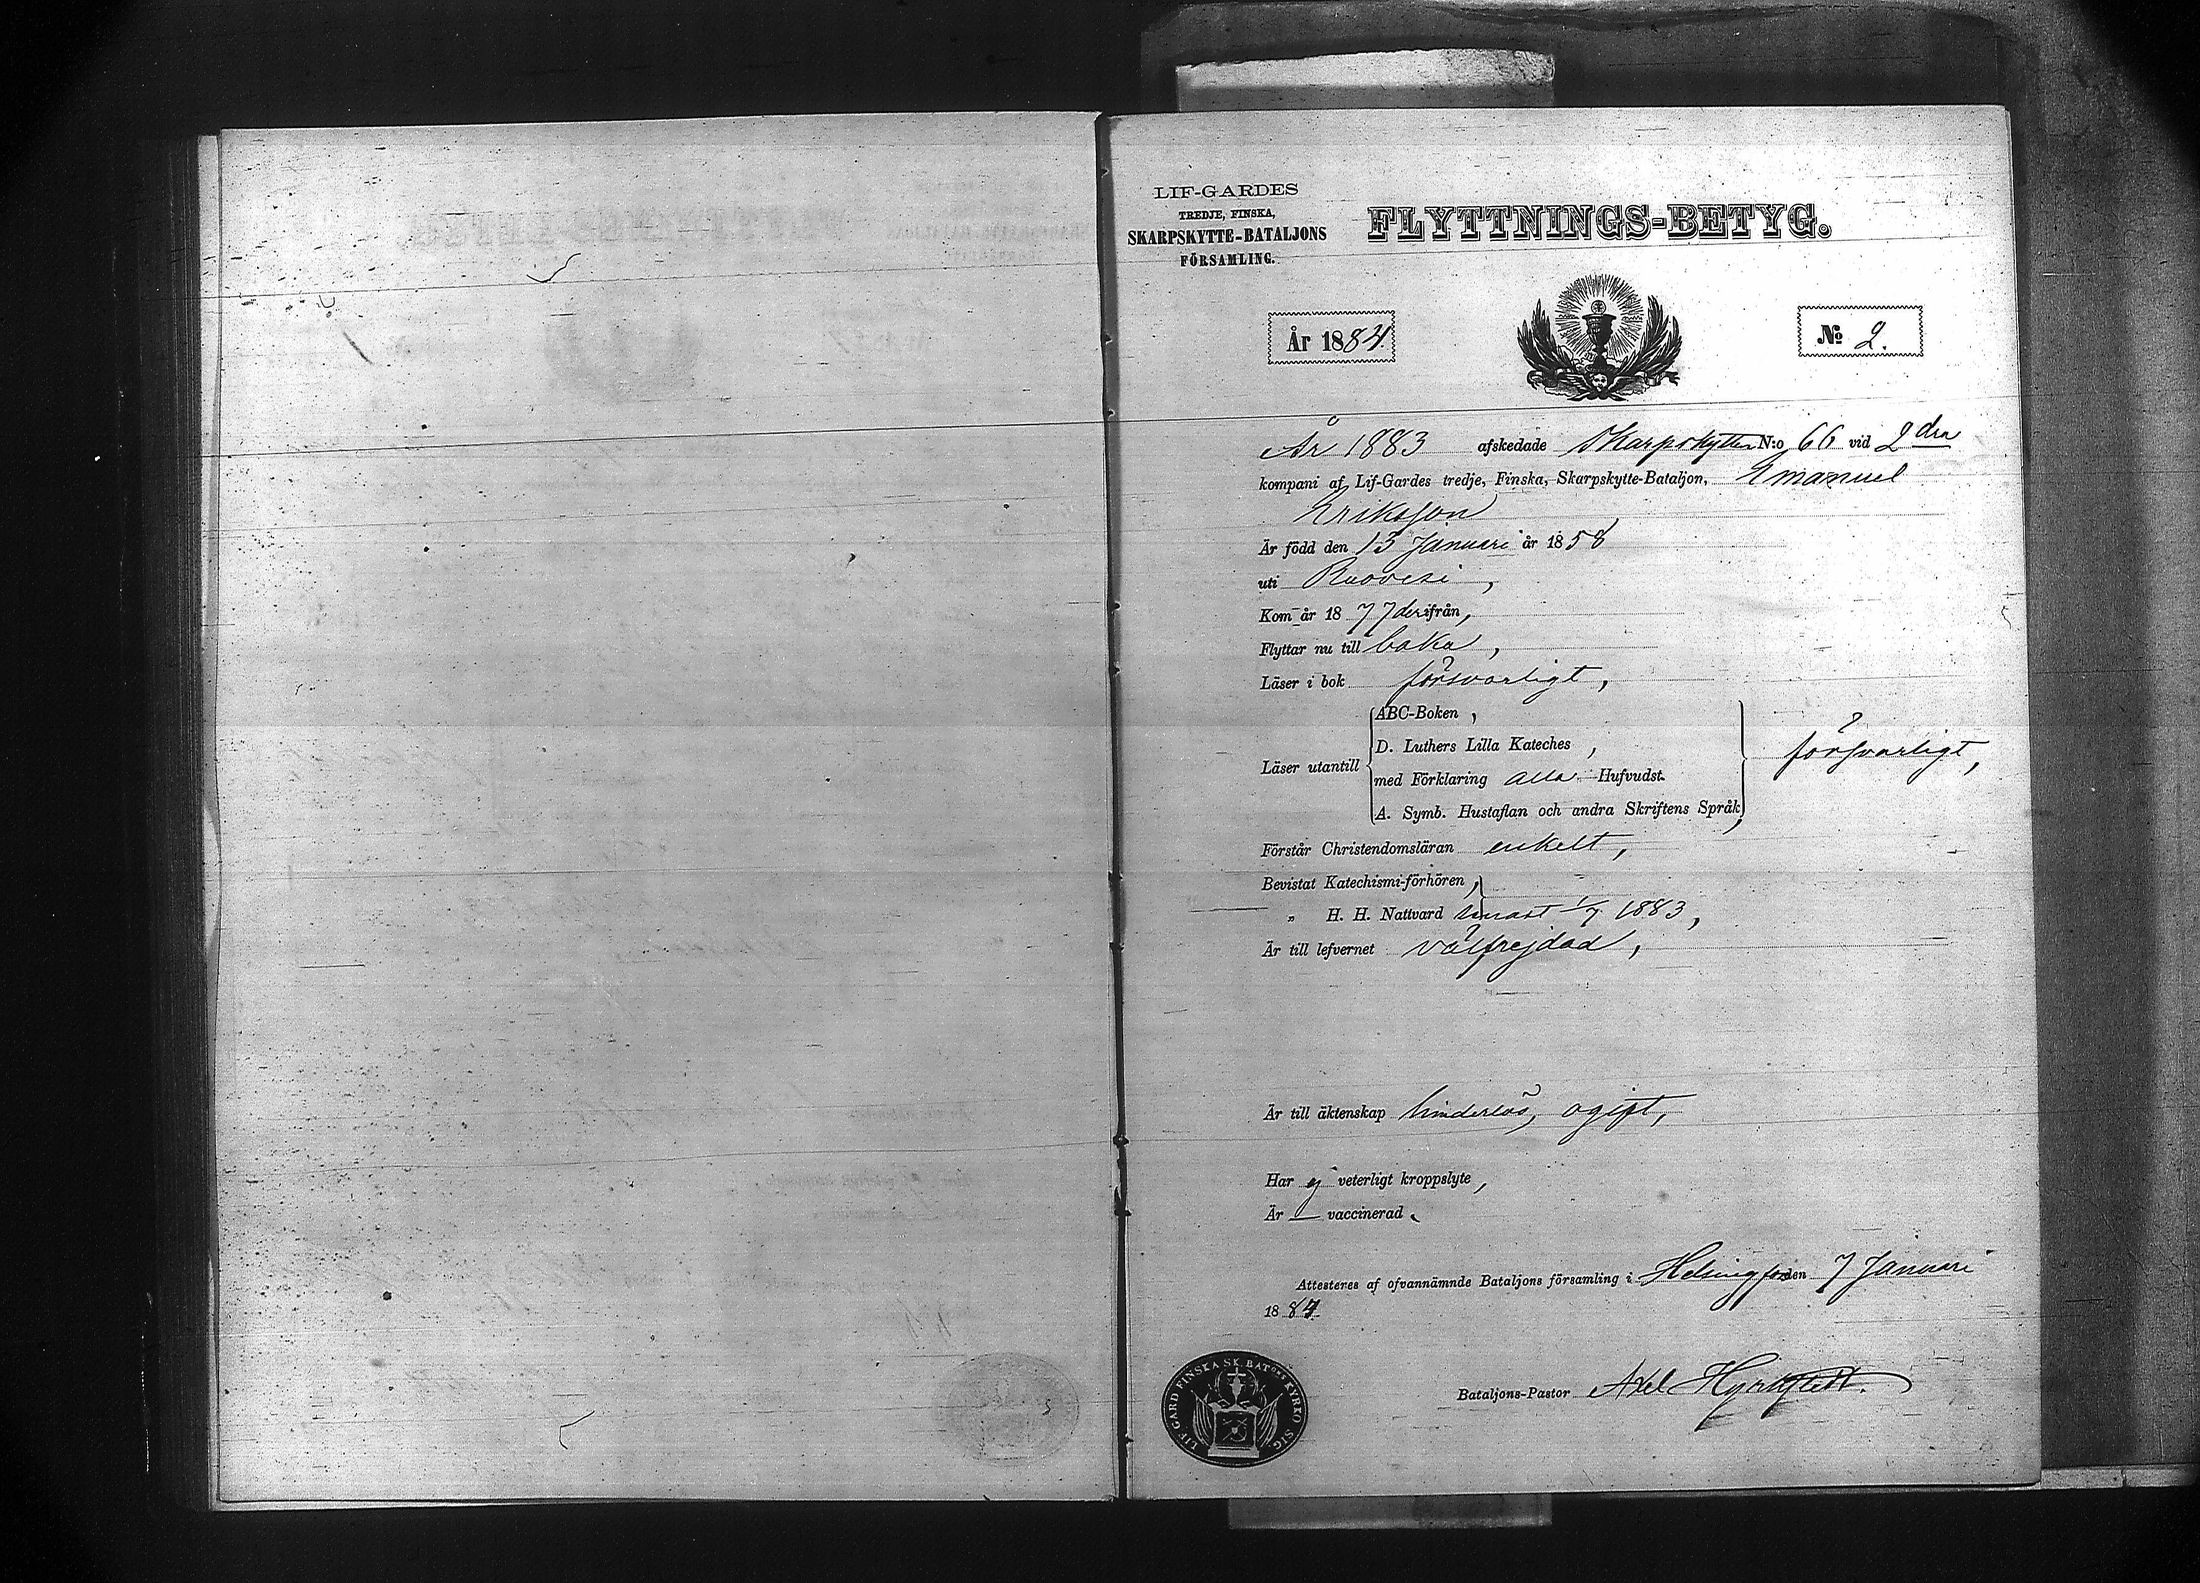 LIF-GARDES
TREDJE, FINSKA,
SKARPSKYTTE-BATALJONS
FÖRSAMLING.
FLYTTNINGS-BETYG.
År 1884.
No 2.
År 1883 afskedade Skarpskytten N:o 66 vid 2dra
kompani af Lif-Gardes tredje, Finska, Skarpskytte-Bataljon, Emanuel
Eriksson
Är född den 13 Januari år 1858
uti Ruovesi,
Kom år 1877 derifrån,
Flyttar nu till baka,
Läser i bok försvarligt,
Läser utantill
ABC-Boken,
D. Luthers Lilla Kateches,
med Förklaring alla Hufvudst.
A. Symb. Hustaflan och andra Skriftens Språk,
försvarligt,
Förstår Christendomsläran enkelt,
Bevistat Katechismi-förhören,
„ H. H. Nattvard senast 1/7 1883,
Är till lefvernet välfrejdad,
Är till äktenskap hinderlös, ogift,
Har ej veterligt kroppslyte,
Är — vaccinerad.
Attesteres af ofvannämnde Bataljons församling i Helsingfors den 7 Januari
1884
Bataljons-Pastor Axel
LIF-GARD FINSKA SK. BATONS KYRKO SIG.